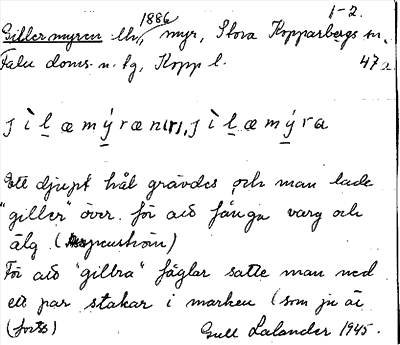 1-2.
1886
Gillermyren uh, myr, Stora Kopparbergs sn,
Falu doms. n. fg, Kopp l. 47a
j ì l æ m ý r æ n (r), j ì l æ m ý r a
Ett djupt hål grävdes och man lade
"giller" över för att fånga varg och
älg (
För att "gillra" fåglar satte man ned
ett par stakar i marken (som ju är
(forts) Gull Lalander 1945.